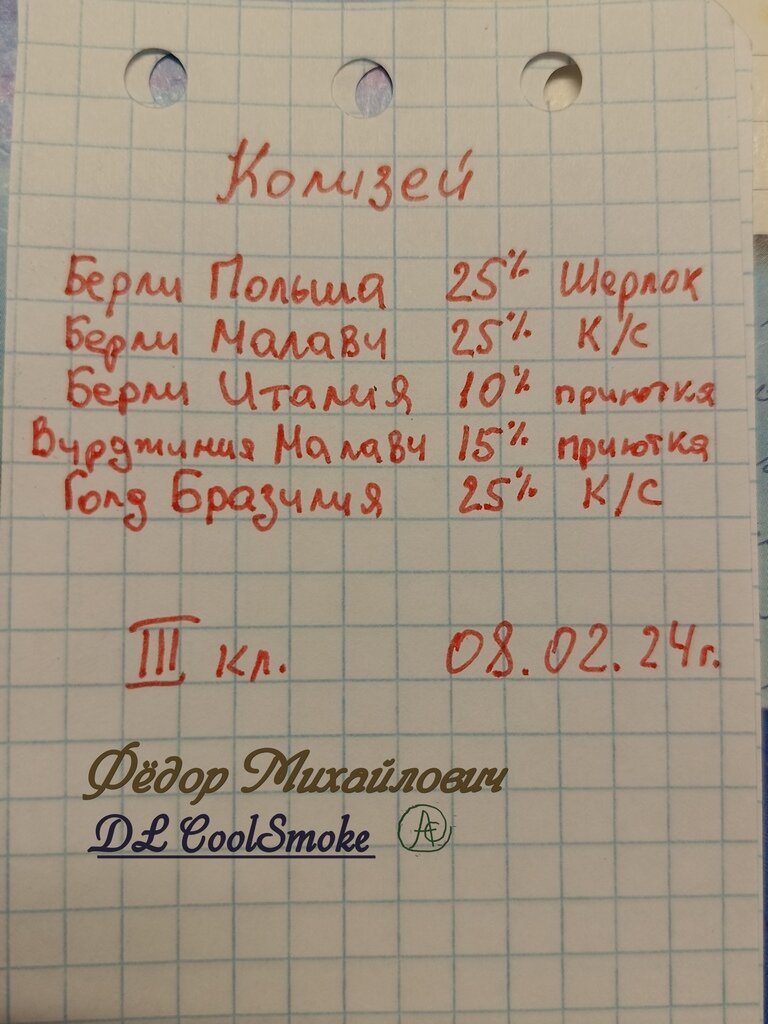 Колизей
Берли Польша 25% Шерлок
Берли Малави 25% К/С
Берли Италия 10% приютка
Вирджиния Малави 15% приютка
Голд Бразилия 25% К/С
III кл. 08.02.24г.
Фёдор Михайлович
DL CoolSmoke